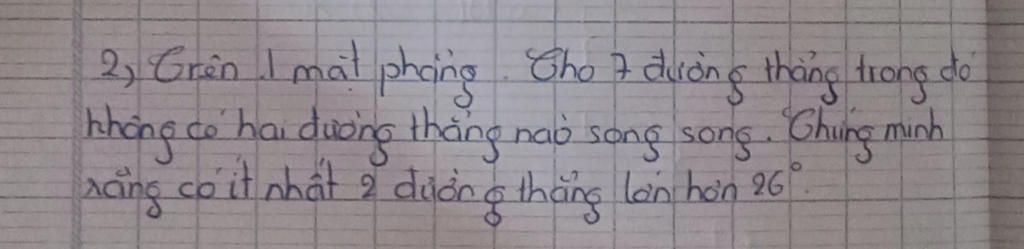 2, Trên 1 mặt phẳng. Cho 7 đường thẳng trong đó
không có hai đường thẳng nào song song. Chứng minh
rằng có ít nhất 2 đường thẳng lớn hơn 26°.